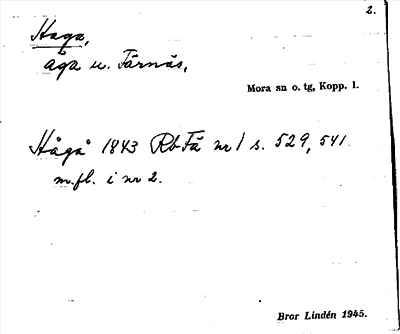 2.
Haga,
åga u. Färnäs,
Mora sn o. tg, Kopp. l.
Hågå 1843 Rb Fä nr 1 s. 529, 541
m.fl. i nr 2.
Bror Lindén 1945.